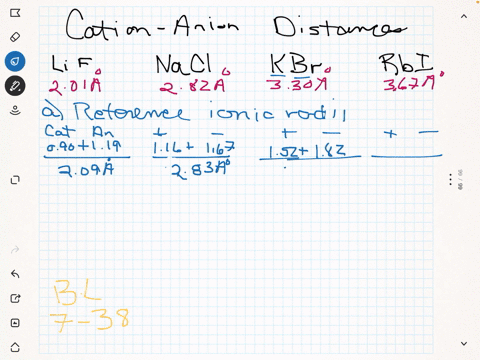 Cation-Anion Distances
LiF NaCl KBr RbI
2.01Å 2.82Å 3.30Å 3.67Å
a) Reference ionic radii
Cat An + - + - + -
0.90+1.19 1.16+1.67 1.52+1.82
2.09Å 2.83Å
BL
7-38